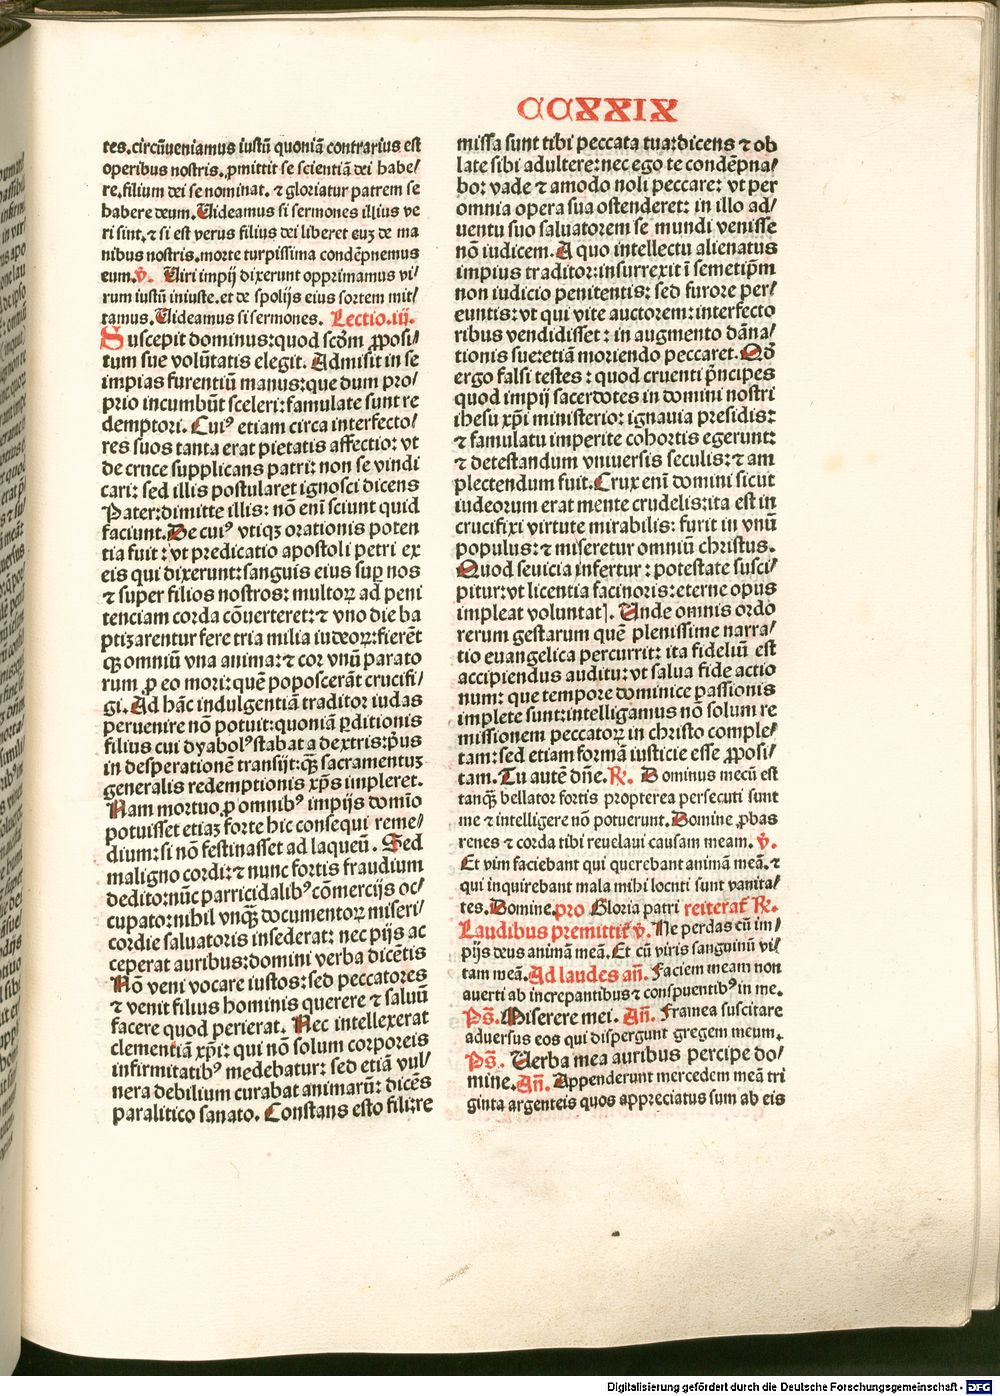 CCXXIX
tes.circūueniamus iustū quoniā contrarius est
operibus nostris.ꝓmittit se scientiā dei habe/
re.filium dei se nominat. ⁊ gloriatur patrem se
habere deum.Uideamus si sermones illius ve
ri sint.⁊ si est verus filius dei liberet euꝫ de ma
nibus nostris.morte turpissima condēpnemus
eum.ꝟ. Uiri impij dixerunt opprimamus vi/
rum iustū iniuste.et de spolijs eius sortem mit/
tamus.Uideamus si sermones. Lectio.iij.
Suscepit dominus:quod scd̄m ꝓposi/
tum sue volūtatis elegit. Admisit in se
impias furentiū manus:que dum pro/
prio incumbūt sceleri:famulate sunt re
demptori. Cuiꝰ etiam circa interfecto/
res suos tanta erat pietatis affectio: vt
de cruce supplicans patri: non se vindi
cari: sed illis postularet ignosci dicens
Pater:dimitte illis: nō enī sciunt quid
faciunt.De cuiꝰ vtiqꝫ orationis poten
tia fuit: vt predicatio apostoli petri ex
eis qui dixerunt:sanguis eius suꝑ nos
⁊ super filios nostros: multoꝝ ad peni
tenciam corda cōuerteret:⁊ vno die ba
ptizarentur fere tria milia iudeoꝝ:fierēt
qꝫ omniū vna anima:⁊ cor vnū parato
rum ꝓ eo mori:quē poposcerāt crucifi/
gi. Ad hāc indulgentiā traditor iudas
peruenire nō potuit:quoniā ꝑditionis
filius cui dyabolꝰ stabat a dextris:pͥus
in desperationē transijt:qꝫ̄ sacramentuꝫ
generalis redemptionis xp̄s impleret.
Nam mortuo ꝓ omnibꝰ impijs domīo
potuisset etiaꝫ forte hic consequi reme/
dium:si nō festinasset ad laqueū. Sed
maligno cordi:⁊ nunc fortis fraudium
dedito:nūc parricidalibꝰ cōmercijs oc/
cupato:nihil vnqꝫ̄ documentoꝝ miseri/
cordie saluatoris insederat: nec pijs ac
ceperat auribus:domini verba dicētis
Nō veni vocare iustos:sed peccatores
⁊ venit filius hominis querere ⁊ saluū
facere quod perierat. Nec intellexerat
clementiā xp̄i: qui nō solum corporeis
infirmitatibꝰ medebatur: sed etiā vul/
nera debilium curabat animarū: dicēs
paralitico sanato. Constans esto fili:re
missa sunt tibi peccata tua:dicens ⁊ ob
late sibi adultere:nec ego te condēpna/
bo: vade ⁊ amodo noli peccare: vt per
omnia opera sua ostenderet: in illo ad/
uentu suo saluatorem se mundi venisse
nō iudicem. A quo intellectu alienatus
impius traditor:insurrexit ī semetip̄m
non iudicio penitentis: sed furore per/
euntis:vt qui vite auctorem: interfecto
ribus vendidisset: in augmento dāna/
tionis sue:etiā moriendo peccaret.Qd̄
ergo falsi testes: quod cruenti pͥncipes
quod impij sacerdotes in domini nostri
ihesu xp̄i ministerio: ignauia presidis:
⁊ famulatu imperite cohortis egerunt:
⁊ detestandum vniuersis seculis:⁊ am
plectendum fuit.Crux enī domini sicut
iudeorum erat mente crudelis:ita est in
crucifixi virtute mirabilis: furit in vnū
populus:⁊ miseretur omniū christus.
Quod seuicia infertur: potestate susci/
pitur:vt licentia facinoris:eterne opus
impleat voluntatꝭ. Unde omnis ordo
rerum gestarum quē plenissime narra/
tio euangelica percurrit: ita fideliū est
accipiendus auditu:vt salua fide actio
num: que tempore dominice passionis
implete sunt:intelligamus nō solum re
missionem peccatoꝝ in christo comple/
tam:sed etiam formā iusticie esse ꝓposi/
tam.Tu autē dn̄e.℞. Dominus mecū est
tanqꝫ̄ bellator fortis propterea persecuti sunt
me ⁊ intelligere nō potuerunt.Domine ꝓbas
renes ⁊ corda tibi reuelaui causam meam. ꝟ.
Et vim faciebant qui querebant animā meā.⁊
qui inquirebant mala mihi locuti sunt vanita/
tes.Domine.pro Gloria patri reiteraꝉ ℞.
Laudibus premittiꝉ ꝟ. Ne perdas cū im/
pijs deus animā meā. Et cū viris sanguinū vi/
tam meā.Ad laudes an̄. Faciem meam non
auerti ab increpantibus⁊ conspuentibꝰ in me.
Ps̄. Miserere mei. An̄. Framea suscitare
aduersus eos qui dispergunt gregem meum.
Ps̄. Uerba mea auribus percipe do/
mine.An̄. Appenderunt mercedem meā tri
ginta argenteis quos appreciatus sum ab eis
Digitalisierung gefördert durch die Deutsche Forschungsgemeinschaft - DFG